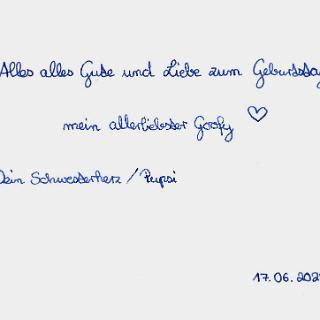 Alles alles Gute und Liebe zum Geburtstag
mein allerliebster Goofy ♡
Dein Schwesterherz / Pupsi
17.06.202